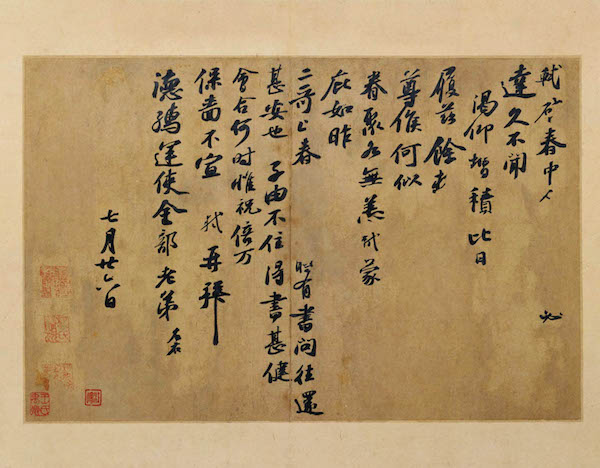 軾啓春中 必
達久不聞
渴仰增積比日
履茲餘
尊候何似
眷聚各無恙軾蒙
庇如昨
二哥上春 有書問往還
甚安也子由不住得書甚健
會合何時惟祝倍万
保嗇不宣 軾再拜
德孺運使金部老弟左右
七月廿六日